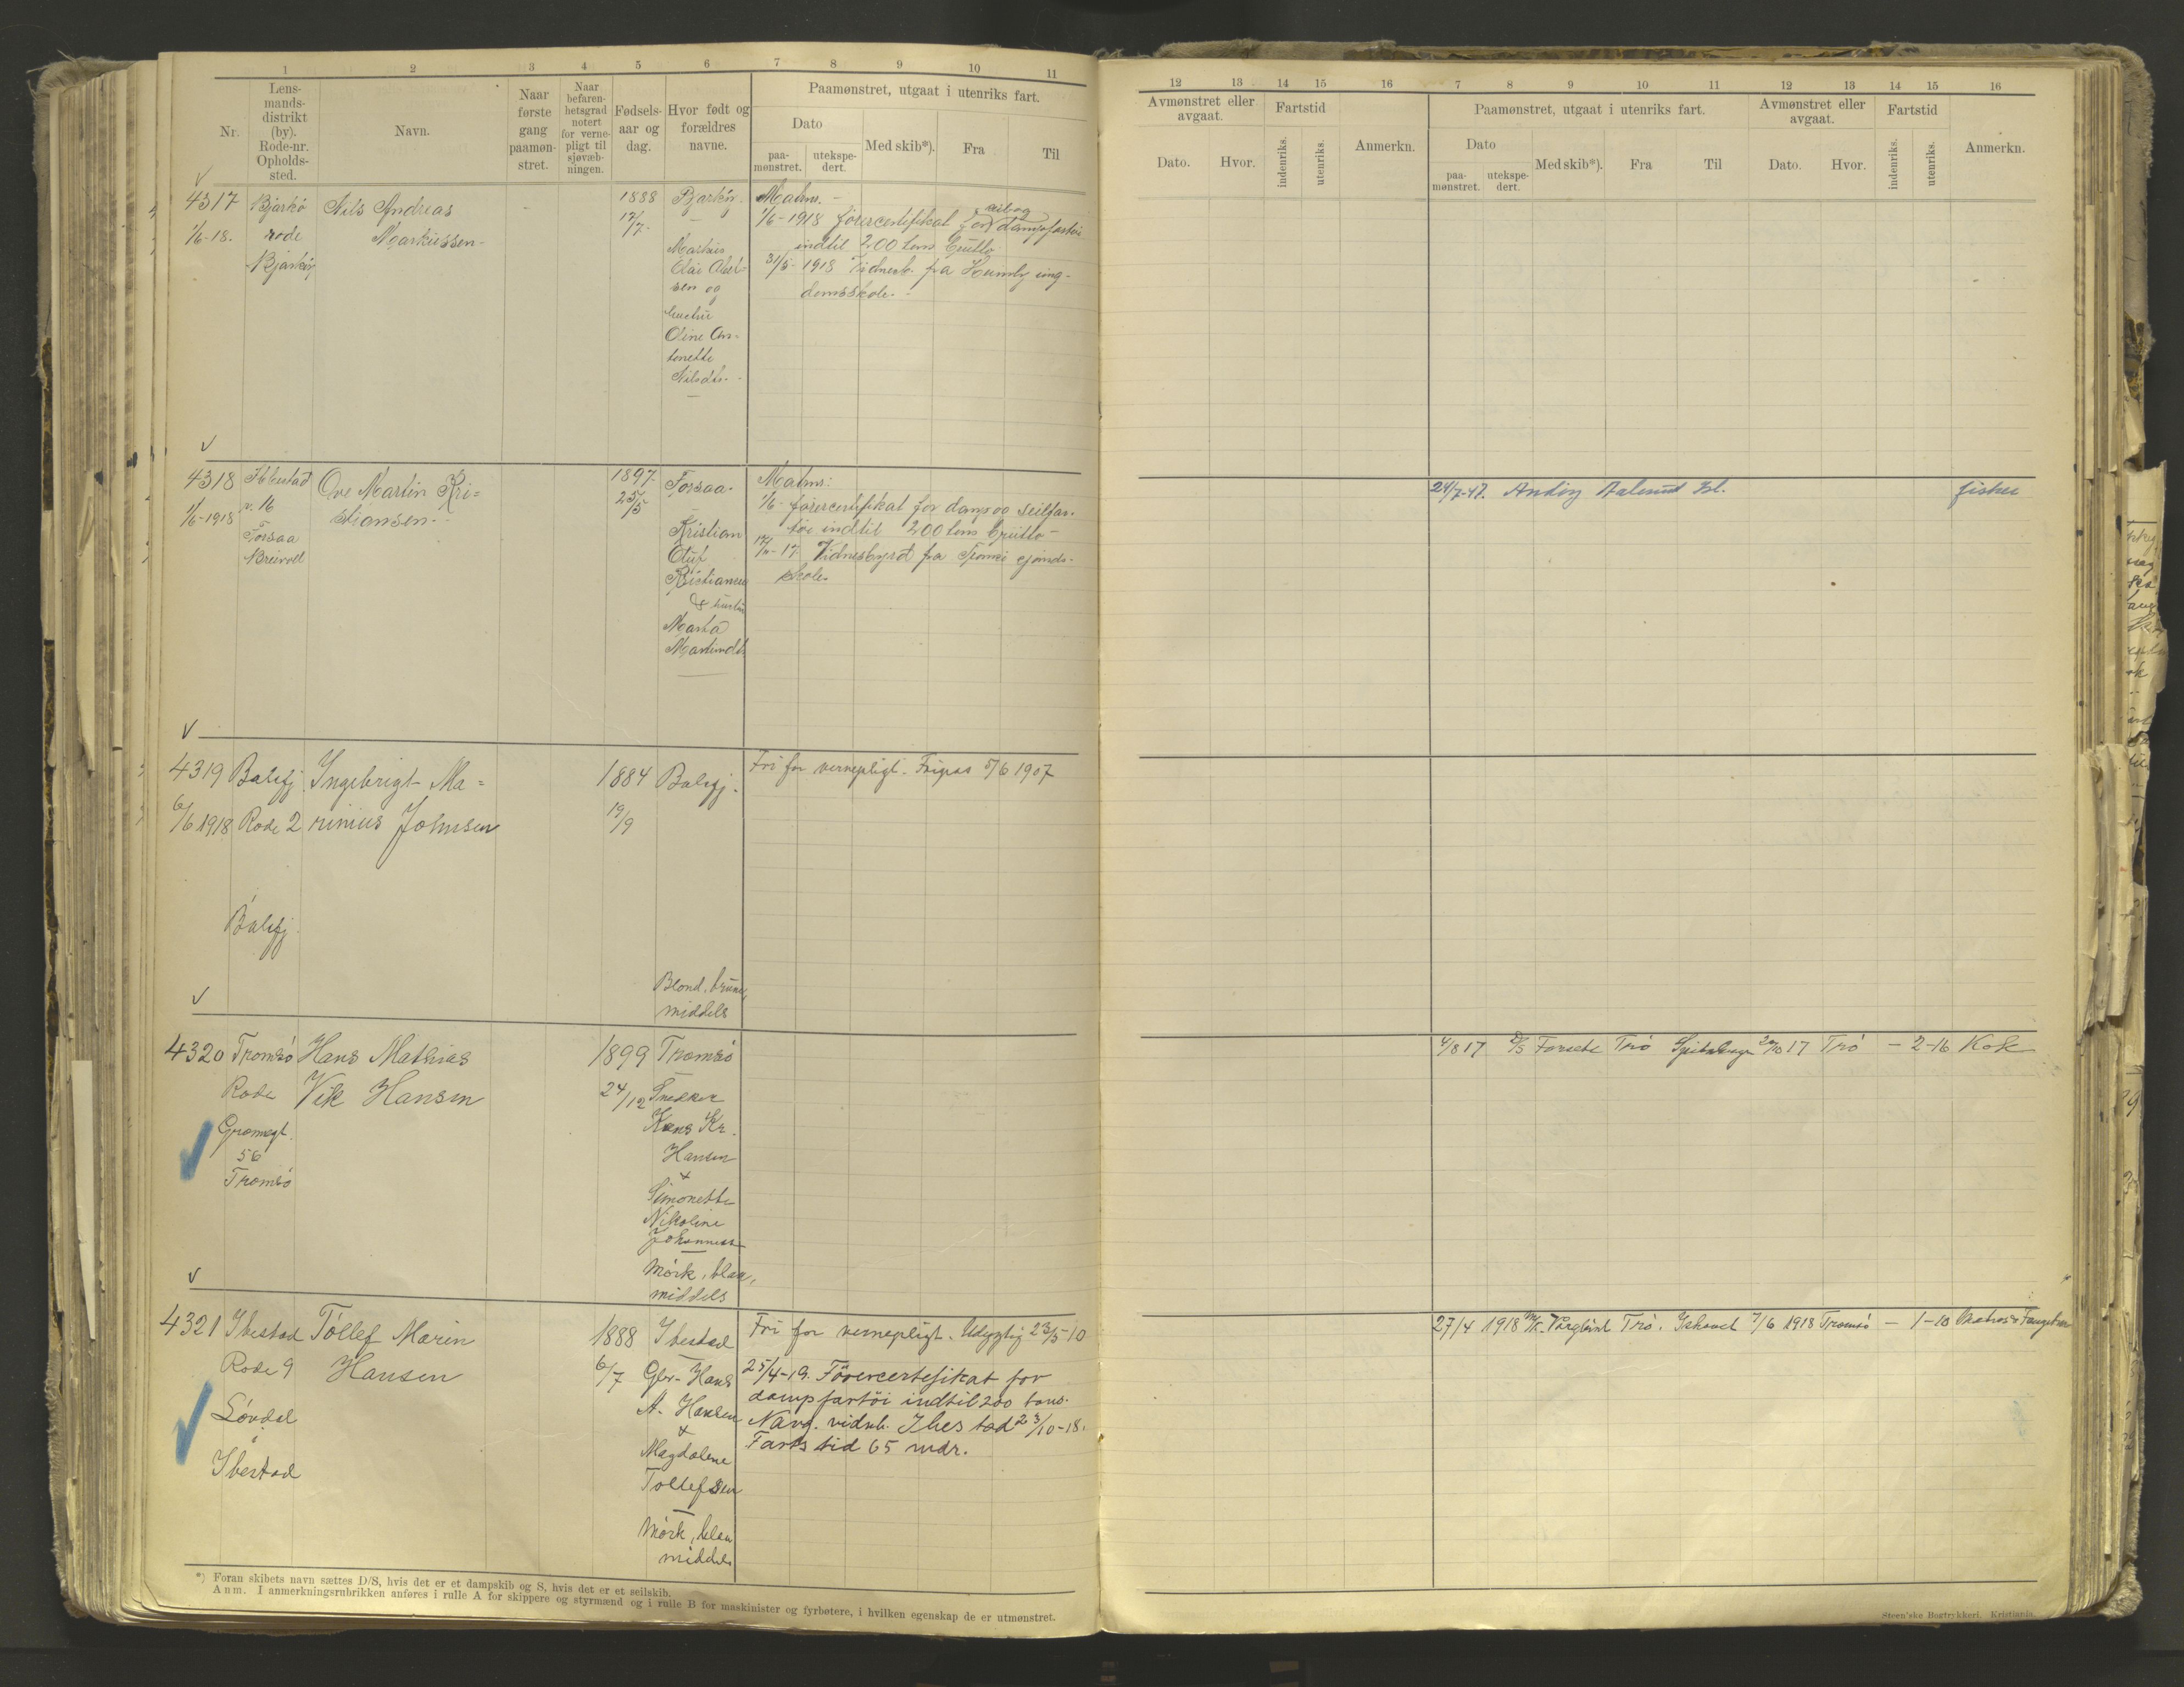 1 2 3 4 5 6 7 8 9 10 11
Nr.
Lens-
mands-
distrikt
(by).
Rode-nr.
Opholds-
sted.
Navn.
Naar
første
gang
paamøn-
stret.
Naar
befaren-
hetsgrad
notert
for verne-
pligt til
sjøvæb-
ningen.
Fødsels-
aar og
dag.
Hvor født og
forældres
navne.
Paamønstret, utgaat i utenriks fart.
Dato
paa-
mønstret.
utekspe-
dert.
Med skib*).
Fra
Til
4317
1/6-18.
Bjarkö
rode
Bjarköy
Nils Andreas
Markussen
1888
17/7
Bjarköy
Markus
Olai
sen og
hustru
Oline An-
tonette
Nilsdtr.
1/6-1918 förercertifikat for seil og dampfartöi
indtil 200 tons brutto
31/5-1918 Vidnesb. fra ung-
domsskole.
4318
1/6-1918
Ibbestad
r. 16
Forsaa
Breivoll
Ove Martin Kri=
stiansen
1897
25/5
Forsaa.
Kristian
Oluf
Kristiansen
& hustru
Marta
Martinsdtr
1/6- förercertifikat for damp og seilfar-
töi indtil 200 tons brutto
17- Vidnesbyrd fra Tromsö sjömds-
skole.
4319
6/6 1918
Balsfj.
Rode 2
Balsfj.
Ingebrigt Ma=
rinius Johnsen
1884
19/9
Balsfj.
Blond, brune,
middels
Fri for vernepligt. Fripas 5/6 1907
4320
Tromsö
Rode
Grønnegt.
56
Tromsö
Hans Mathias
Vik Hansen
1899
24/12
Tromsö
Snekker
Hans Kr.
Hansen
+
Simonette
Nikoline
Johannesen
Mörk, blaa,
middels
4321
Ibestad
Rode 9
Lövdal
Ibestad
Tollef Marin
Hansen
1888
6/7
Ibestad
Gbr. Hans
A. Hansen
+
Magdalene
Tollefsen
Mörk, blaa
middels
Fri for vernepligt. Udygtig 23/5-10
25/4-19. Förercertifikat for
dampfartöi indtil 200 tons.
Navg. vidnb. Ibestad 23/10-18.
Fartstid 65 mdr.
*) Foran skibets navn sættes D/S, hvis det er et dampskib og S, hvis det er et seilskib.
Anm. I anmerkningsrubrikken anføres i rulle A for skippere og styrmænd og i rulle B for maskinister og fyrbøtere, i hvilken egenskap de er utmønstret.
12 13 14 15 16 7 8 9 10 11 12 13 14 15 16
Avmønstret eller
avgaat.
Dato.
Hvor.
Fartstid
indenriks.
utenriks.
Anmerkn.
Paamønstret, utgaat i utenriks fart.
Dato
paa-
mønstret.
utekspe-
dert.
Med skib*).
Fra
Til
Avmønstret eller
avgaat.
Dato.
Hvor.
Fartstid
indenriks.
utenriks.
Anmerkn.
24/7-47. Andöy Aalesund Isl. fisker
4/8 17 D/S Forsete Trö Spitsbergen 20/10 17 Trö - 2-16 Kok
27/4 1918 M/K. Trö. Ishavet 7/6 1918 Tromsö - 1-10 Matros & Fangstman
Steen'ske Bogtrykkeri. Kristiania.